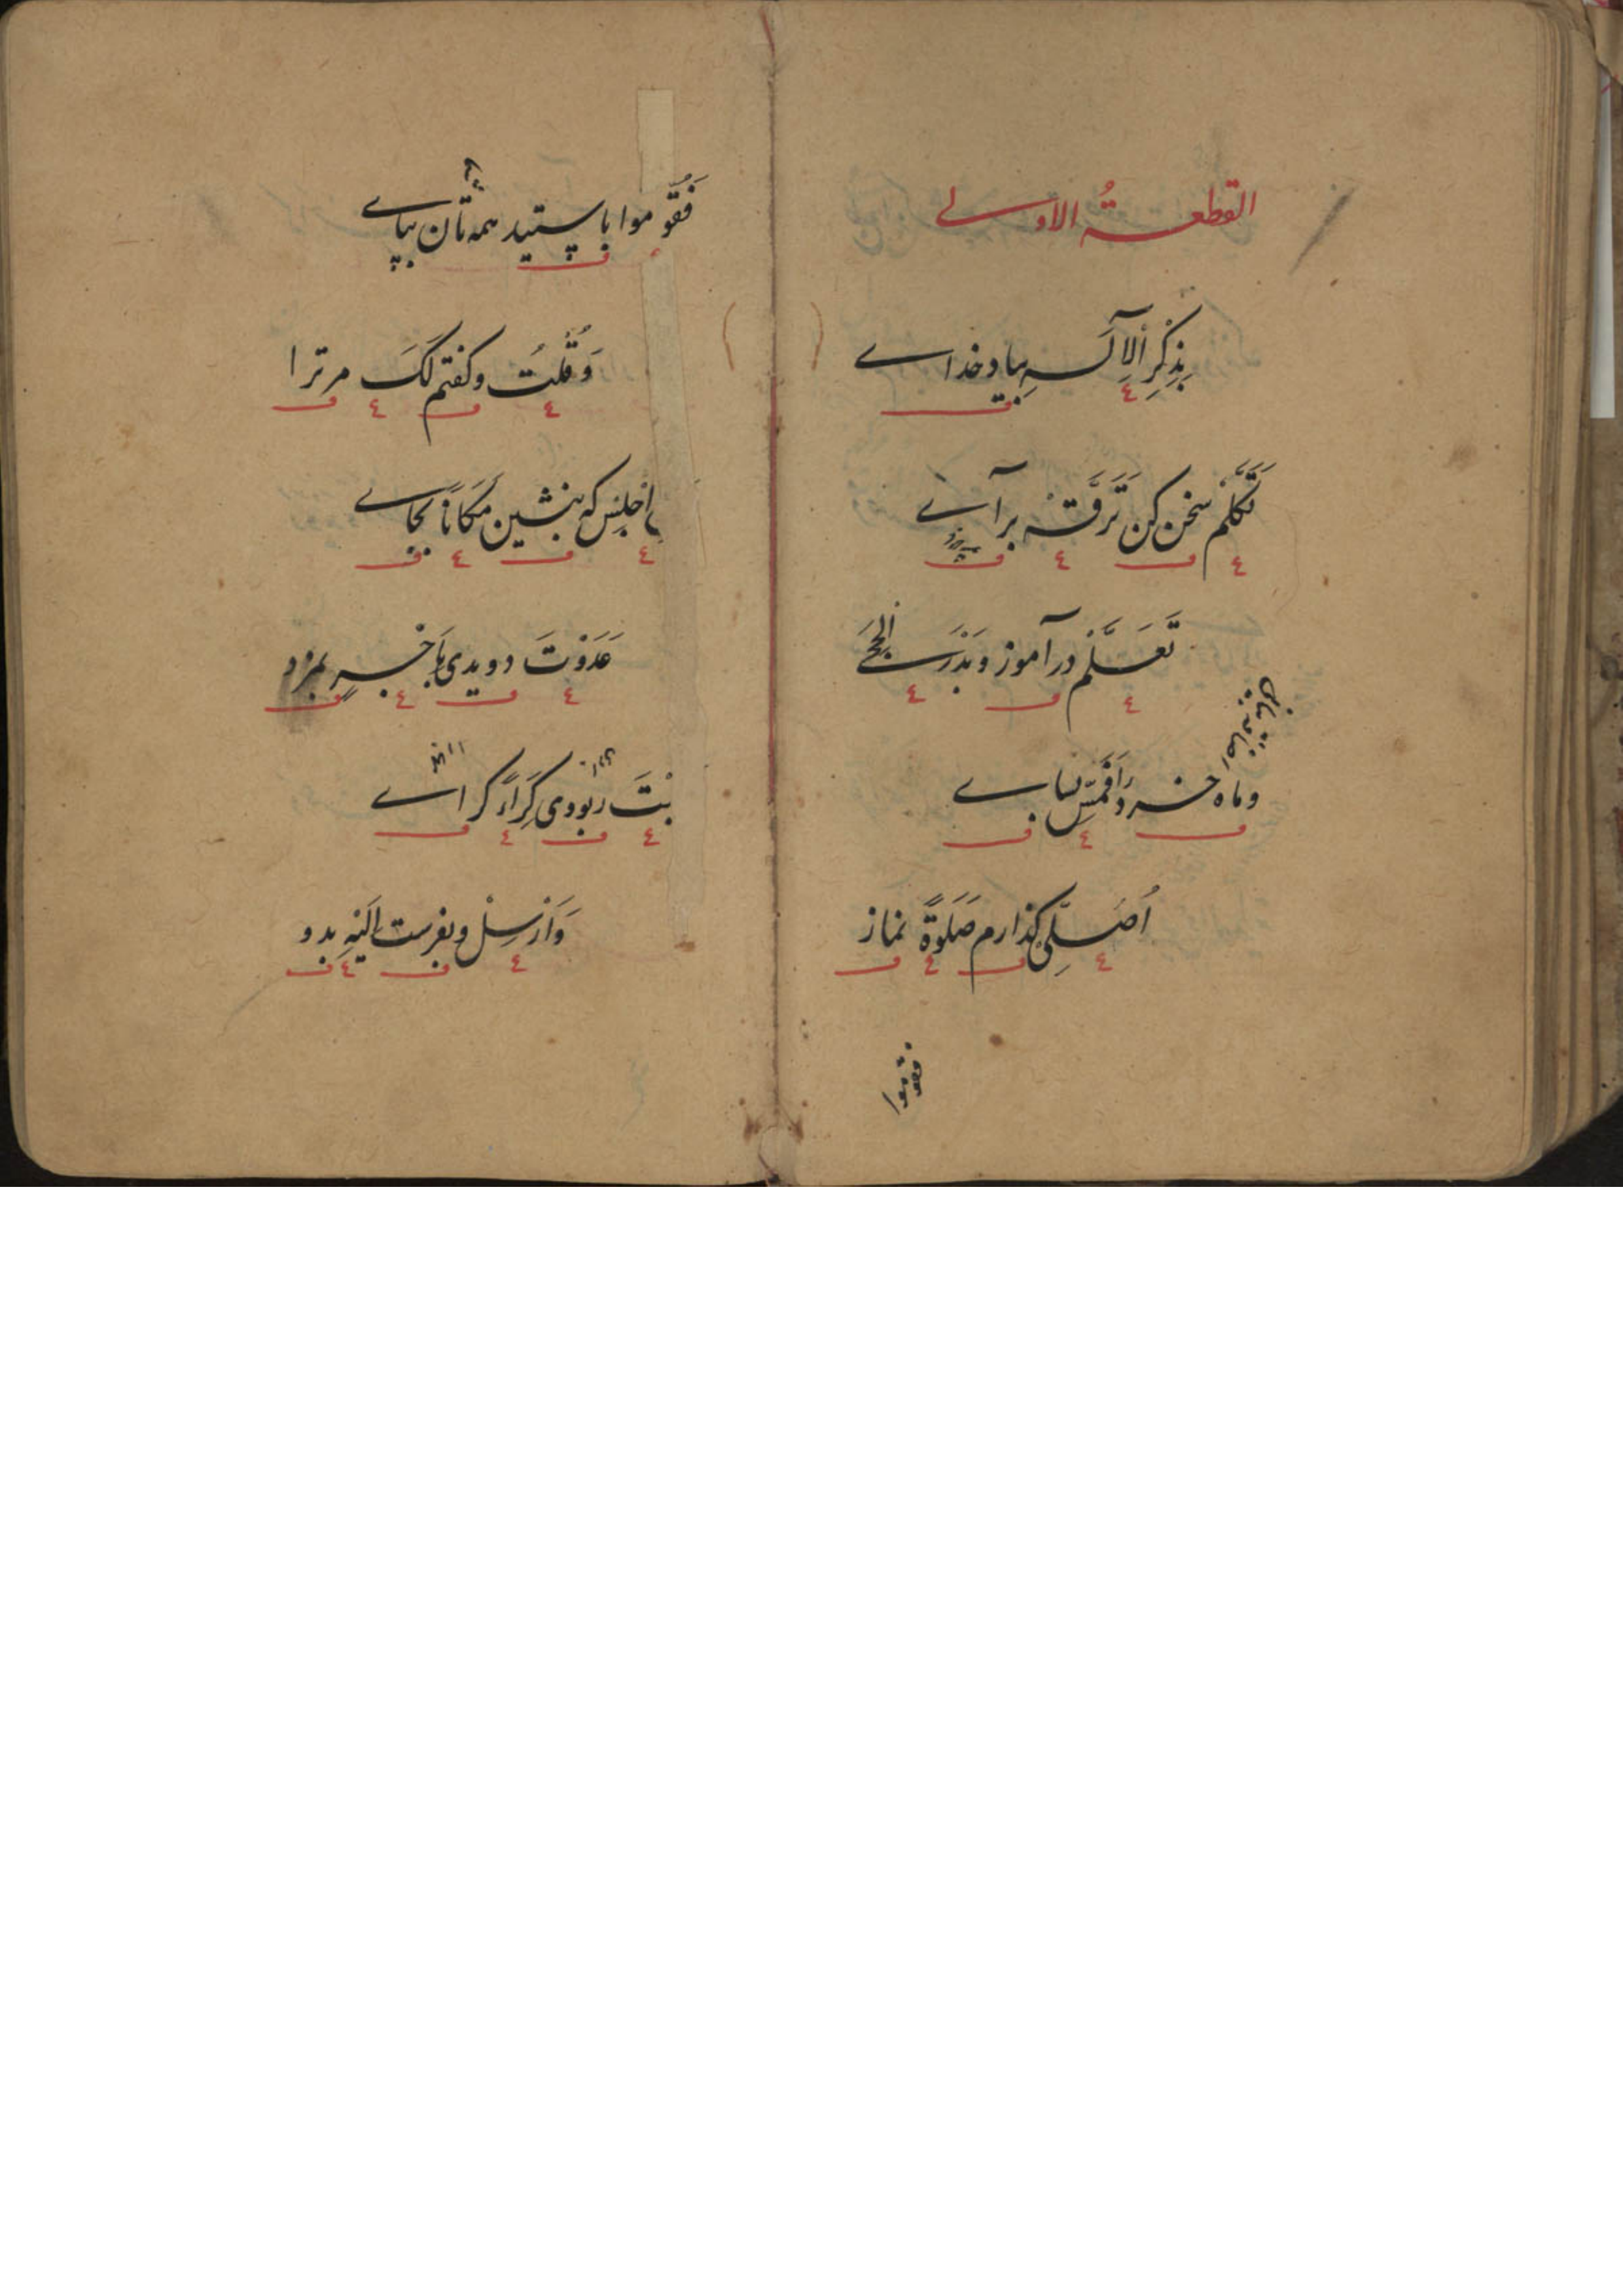 القطعةُ الاولے
بِذِكْرِ الاِلٰهِ بیاد خداے
تَكَلَّمْ سخن کن تَرَقَّهْ برآے
تَعَلَّمْ درآموز وبَدْرَ
وماه خرد را لباے
اُصَلِّى گذارم صَلٰوةً نماز
فقوموا
فَقُوموا باپستید همه‌تان بپاے
وَقُلْتُ وگفتم لَكَ مر ترا
اِجْلِسْ که بنشین مَكَانًا بجاے
عَدَوْتَ دویدی بمزد
بْتَ ربودی كِرَاءً کراے
وَاَرْسِلْ وبفرست اِلَيْهِ بدو